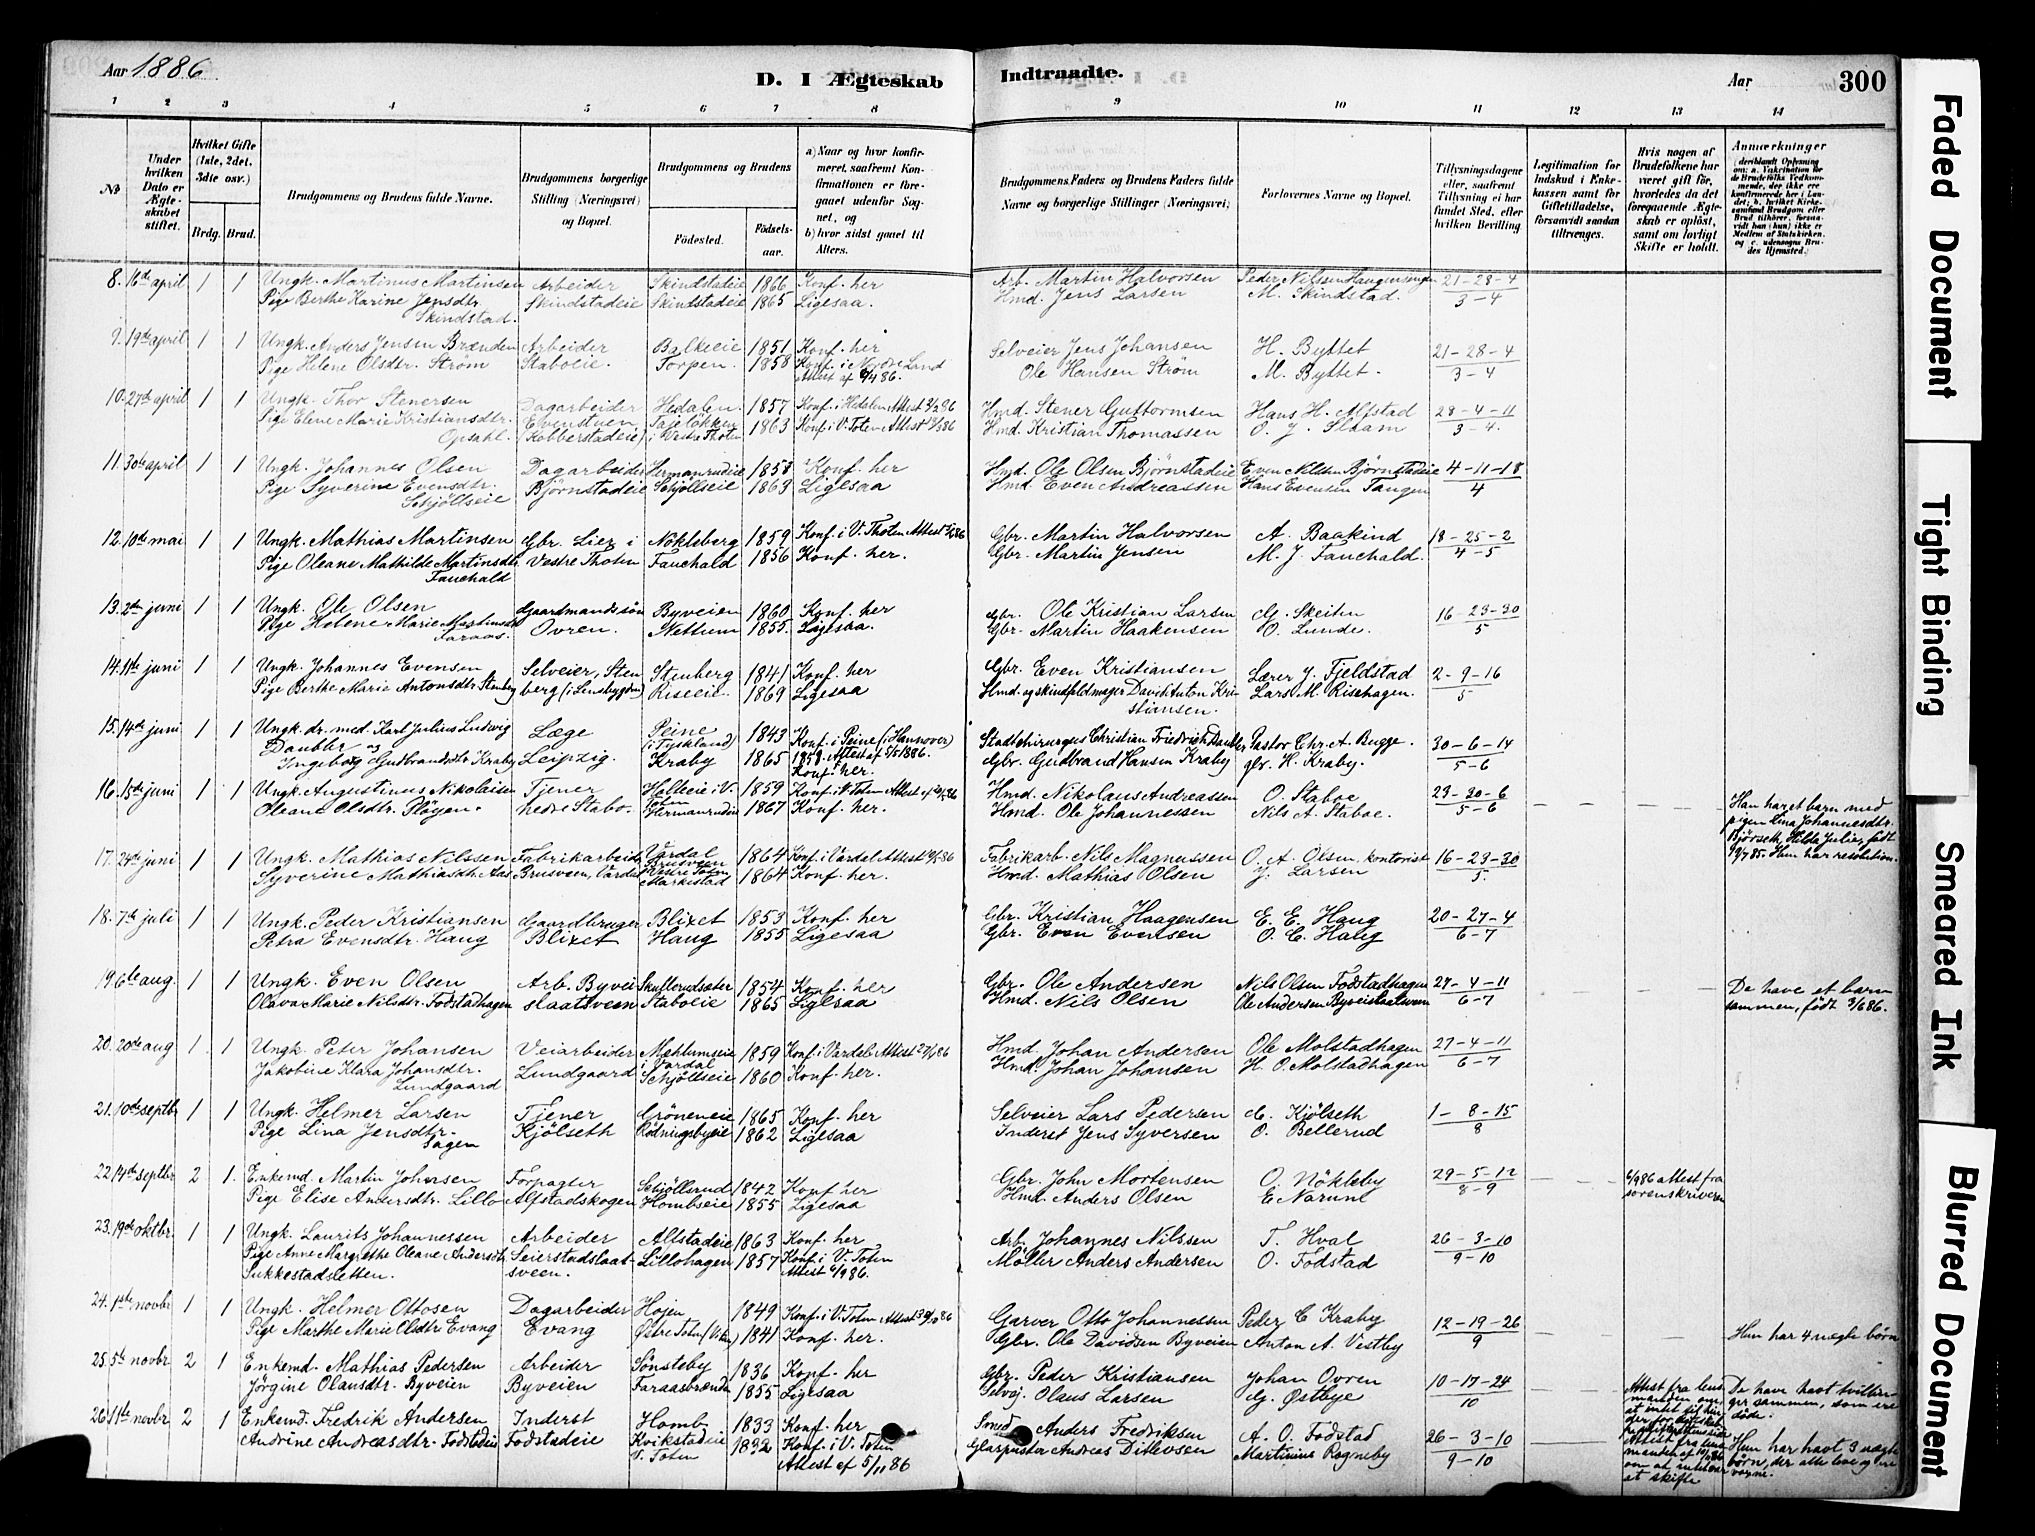 Aar 1886.
D. I Ægteskab Indtraadte.
Aar
300
1 2 3 4 5 6 7 8 9 10 11 12 13 14
No
Under hvilken Dato er Ægteskabet stiftet.
Hvilket Gifte (1ste, 2det, 3die osv.)
Brdg. Brud.
Brudgommens og Brudens fulde Navne.
Brudgommens borgerlige Stilling (Næringsvei) og Bopæl.
Brudgommens og Brudens
Fødested.
Fødselsaar.
a) Naar og hvor konfirmeret, saafremt Konfirmationen er foregaaet udenfor Sognet, og
b) hvor sidst gaaet til Alters.
Brudgommens Faders og Brudens Faders fulde Navne og borgerlige Stillinger (Næringsvei)
Forlovernes Navne og Bopæl.
Tillysningsdagene eller, saafremt Tillysning ei har fundet Sted, efter hvilken Bevilling.
Legitimation for Indskud i Enkekassen samt for Giftetilladelse, forsaavidt saadan tiltrænges.
Hvis nogen af Brudefolkene har været gift før, hvorledes da det foregaaende Ægteskab er opløst, samt om lovligt Skifte er holdt.
Anmærkninger
8. 16de april 1 1 Ungk. Martinus Martinsen Arbeider Skindstadeie 1866 Konf. her Arb. Martin Halvorsen Peder Nilssen 21-28-4
Pige Berthe Karine Jensdtr. Skindstadeie Skindstadeie 1865 Ligesaa. Hmd. Jens Larsen M. Skindstad. 3-4
Skindstad.
9. 19de april 1 1 Ungk. Anders Jensen Brænden Arbeider Balkeeie 1851 Konf. her Selveier Jens Johansen H. Byttet 21-28-4
Pige Helene Olsdtr. Strøm Staboeie. Torpen. 1858 Konf. i Nordre Land Ole Hansen Strøm M. Byttet. 3-4
Attest af 9/4 86.
10. 27de april 1 1 Ungk. Thor Stenersen Dagarbeider Hedalen 1857 Konf. i Hedalen Attest Hmd. Stener Guttormsen Hans H. Alfstad 28-4-11
Pige Elene Marie Kristiansdtr. Evenstuen, 1863 Konf. i V. Toten Attest Hmd. Kristian Thomassen O. J. 3-4.
Opsahl. Kobberstadeie i Vestre Thoten
11. 30de april 1 1 Ungk. Johannes Olsen Dagarbeider Hermanrudeie 1858 Konf. her Hmd. Ole Olsen Bjørnstadeie Even Nilssen Bjørnstadeie 4-11-18
Pige Syverine Evensdtr. Bjørnstadeie Schjøllseie 1863 Ligesaa Hmd. Even Andreassen Hans Evensen Tangen 4
Schjøllseie
12. 10de mai 1 1 Ungk. Mathias Martinsen Gbr. Lier i Nøkleberg 1859 Konf. i V. Thoten Attest Gbr. Martin Halvorsen A. Baakind 18-25-2
Pige Oleane Mathilde Martinsdtr. Vestre Thoten Fauchald 1856 Konf. her. Gbr. Martin Jensen M. J. Fauchald. 4-5
Fauchald
13. 2den juni 1 1 Ungk. Ole Olsen Gaardmandssøn Byveien 1860 Konf. her Gbr. Ole Kristian Larsen G. Skeiten 16-23-30
Pige Helene Marie Martinsdtr. Ovren. Nettum 1855. Ligesaa. Gbr. Martin Haakensen O. Lunde. 5
14. 11te juni 1 1 Ungk. Johannes Evensen Selveier, Sten Stenberg 1841 Konf. her Gbr. Even Kristiansen Lærer J. Fjeldstad 2-9-16
Pige Berthe Marie Antonsdtr. Stenberg berg (i Lensbygden) Riseeie. 1869 Ligesaa Hmd. og skindfeldmager David Anton Kri- Lars M. Risehagen. 5
stiansen.
15. 14de juni 1 1 Ungk. dr. med. Karl Julius Ludwig Læge Peine 1843 Konf. i Peine (i Hannover) Stadtchirurgus Christian Friedrich Daubler Pastor Chr. A. Bugge. 30-6-14
og (i Tyskland) 1858. Attest af 5/5 1886.
Ingeborg Gudbrandsdtr. Kraby Leipzig. Kraby 1865 Konf. her. Gbr. Gudbrand Hansen Kraby gbr. H. Kraby. 5-6
16. 15de juni 1 1 Ungk. Augustinus Nikolaisen Tjener Halleeie i V. 1859 Konf. i V. Toten Attest Hmd. Nikolaus Andreassen O. Staboe 23-30-6
Oleane Olsdtr. Pløgen. nedre Stabo. Toten Hermanrudeie 1867 Konf. her. Hmd. Ole Johannessen Nils A. Staboe. 5-6
Han har et barn med pigen Lina Johannesdtr. Bjørseth, Hilda Julie, født 19/7 85. Hun har resolution.
17. 24de juni 1 1 Ungk. Mathias Nilssen Fabrikarbeider Vardal 1864 Konf. i Vardal Attest Fabrikarb. Nils Magnussen O. A. Olsen, kontorist 16-23-30
Syverine Mathiasdtr. Aas Brusveen, Vardal Vestre Toten Markestad 1864 Konf. her. Hmd. Mathias Olsen J. Larsen 5.
18. 7de juli 1 1 Ungk. Peder Kristiansen Gaardbruger Blixet 1853 Konf. her Gbr. Kristian Haagensen E. E. Haug 20-27-4
Petra Evensdtr. Haug Blixet Haug 1855 Ligesaa Gbr. Even Evensen O. C. Haug 6-7
19. 6te aug. 1 1 Ungk. Even Olsen Arb. Byvei 1854 Konf. her Gbr. Ole Andersen Nils Olsen Fodstadhagen 27-4-11
Olava Marie Nilsdtr. Fodstadhagen slaatsveen Staboeie 1865 Ligesaa Hmd. Nils Olsen Ole Andersen Byveislaatsveen 6-7
De have et barn sammen, født 3/6 86.
20. 20de aug 1 1 Ungk. Peter Johansen Veiarbeider Mæhlumseie 1859 Konf. i Vardal Attest 27/6 86 Hmd. Johan Andersen Ole Molstadhagen 27-4-11
Jakobine Klara Johansdtr. Lundgaard i Vardal Schjøllseie 1860 Konf. her. Hmd. Johan Johansen H. O. Molstadhagen 6-7
Lundgaard
21. 10de septbr. 1 1 Ungk. Helmer Larsen Tjener Grøneneie 1865 Konf. her Selveier Lars Pedersen C. Kjølseth 1-8-15
Pige Lina Jensdtr. Kjølseth Rødningsbyeie 1862 Ligesaa Inderst Jens Syversen O. Bellerud 8
Sagen
22. 14de septbr. 2 1. Enkemd. Martin Johnsen Forpagter Schjøllsrud 1842 Konf. her Gbr. John Mortensen O. Nøkleby 29-5-12
Pige Elise Andersdtr. Lillo Alfstadskogen Hombseie 1855 Ligesaa Hmd. Anders Olsen E. Narum 8-9
6/9 86 attest fra sorenskriveren
23. 19de oktbr. 1 1 Ungk. Laurits Johannessen Arbeider Alfstadeie 1863 Konf. her Arb. Johannes Nilssen T. Hval 26-3-10
Pige Anne Margrethe Oleane Andersdtr. Seierstadslaat- Lillohagen 1857 Konf. i V. Toten Møller Anders Andersen O. Fodstad 9-10
Sukkestadsletten. sveen. Attest 6/9 86.
24. 1ste novbr 1 1 Ungk. Helmer Ottosen Dagarbeider Højen 1849 Konf. i V. Toten Attest Garver Otto Johannessen Peder C Kraby 12-19-26
Pige Marthe Marie Olsdtr. Evang Evang Østre Toten 1841 Konf. her. Gbr. Ole Davidsen Byveien Anton A. Vestby 9
Hun har 4 uægte børn
25. 5te novbr 2 1 Enkemd. Mathias Pedersen Arbeider Sønsteby 1836 Konf. her Gbr. Peder Kristiansen Johan Ovren 10-17-24
Jørgine Olausdtr. Byveien Byveien Faraasbrænden 1855 Ligesaa Selvej. Olaus Larsen G. Østbye 10
De have havt tvillinger sammen, som ere døde.
26. 11te novbr 2 1 Enkemd. Fredrik Andersen Inderst Homb 1833 Konf. her Smed Anders Fredriksen A. O. Fodstad 26-3-10
Andrine Andreasdtr. Fodstadeie Fodstadeie Kvikstadeie 1832 Konf. i V. Toten Glasmester Andreas Ditlevsen Martinius Rogneby 9-10
V. Toten Attest af 5/11 86
Hun har havt 3 uægte børn, der alle leve og ere voxne.
Faded Document
Tight Binding
Smeared Ink
Blurred Document